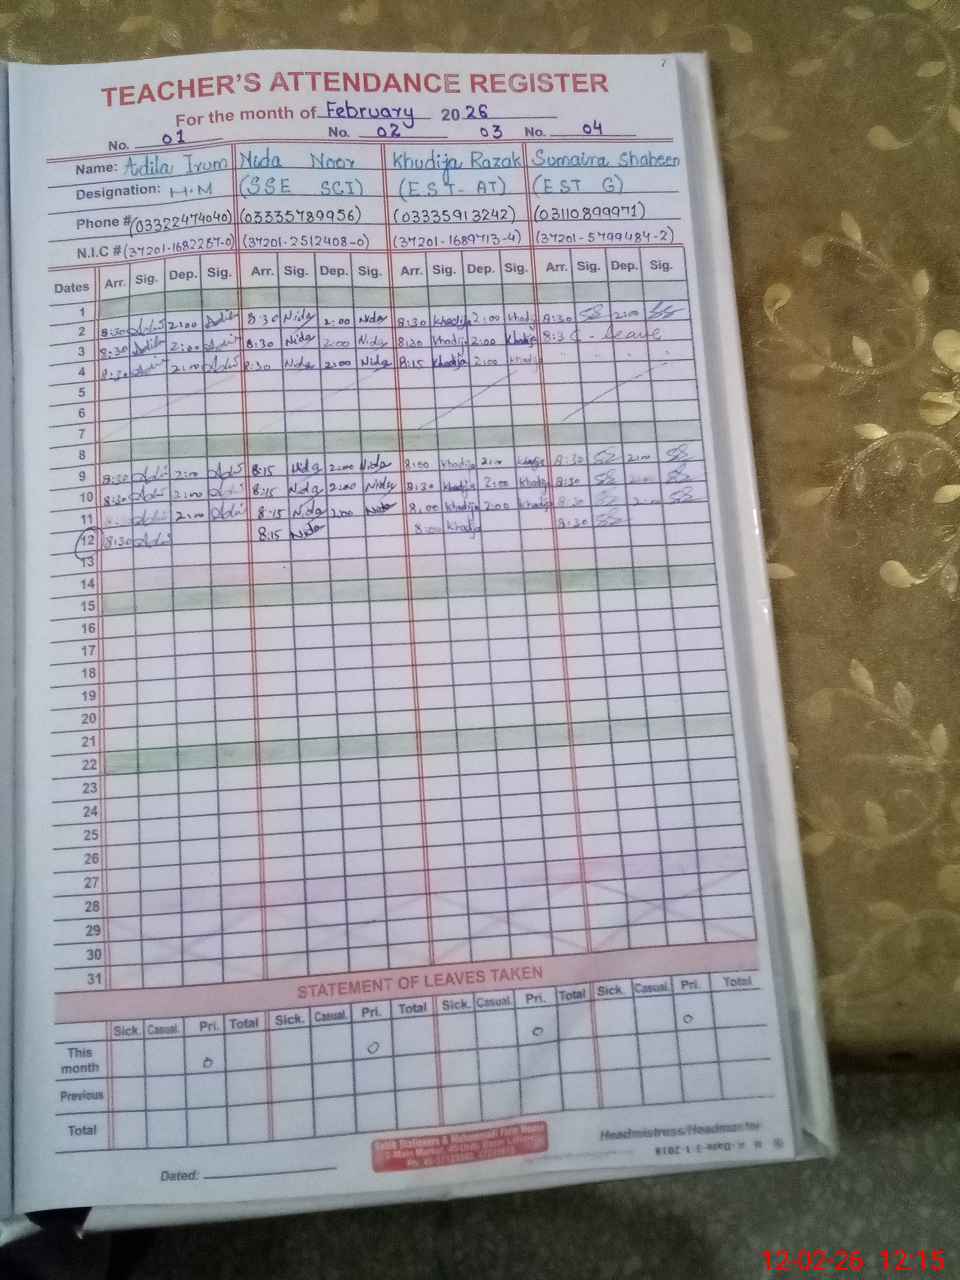 2
TEACHER'S ATTENDANCE REGISTER
For the month of February 2026
No. 01 No. 02 03 No. 04
Name: Adila Irum Nida Noor Khudija Razak Sumaira Shaheen
Designation: H.M (SSE SCI) (EST-AT) (EST G)
Phone # (03322474040) (03335789956) (03335913242) (03110899971)
N.I.C # (37201-1682267-0) (37201-2512408-0) (37201-1689713-4) (37201-5799484-2)
Dates Arr. Sig. Dep. Sig. Arr. Sig. Dep. Sig. Arr. Sig. Dep. Sig. Arr. Sig. Dep. Sig.
1
2 8:30 2:00 8:30 Nida 2:00 Nida 8:30 Khadija 2:00 Khadija 8:30 SS 2:00 SS
3 8:30 2:00 8:30 Nida 2:00 Nida 8:30 Khadija 2:00 Khadija Leave
4 8:30 2:00 8:30 Nida 2:00 Nida 8:15 Khadija 2:00 Khadija
5
6
7
8
9 8:30 2:00 8:15 Nida 2:00 Nida 8:00 Khadija 2:00 Khadija 8:30 SS 2:00 SS
10 8:30 2:00 8:15 Nida 2:00 Nida 8:30 Khadija 2:00 Khadija 8:30 SS 2:00 SS
11 2:00 8:15 Nida 2:00 Nida 8:00 Khadija 2:00 Khadija 8:30 SS 2:00 SS
12 8:30 8:15 Nida 8:00 Khadija 8:30 SS
13
14
15
16
17
18
19
20
21
22
23
24
25
26
27
28
29
30
31
STATEMENT OF LEAVES TAKEN
Sick. Casual. Pri. Total Sick. Casual. Pri. Total Sick. Casual. Pri. Total Sick. Casual. Pri. Total
This month 0 0 0 0
Previous
Total
Headmistress/Headmaster
Dated:
12-02-26 12:15